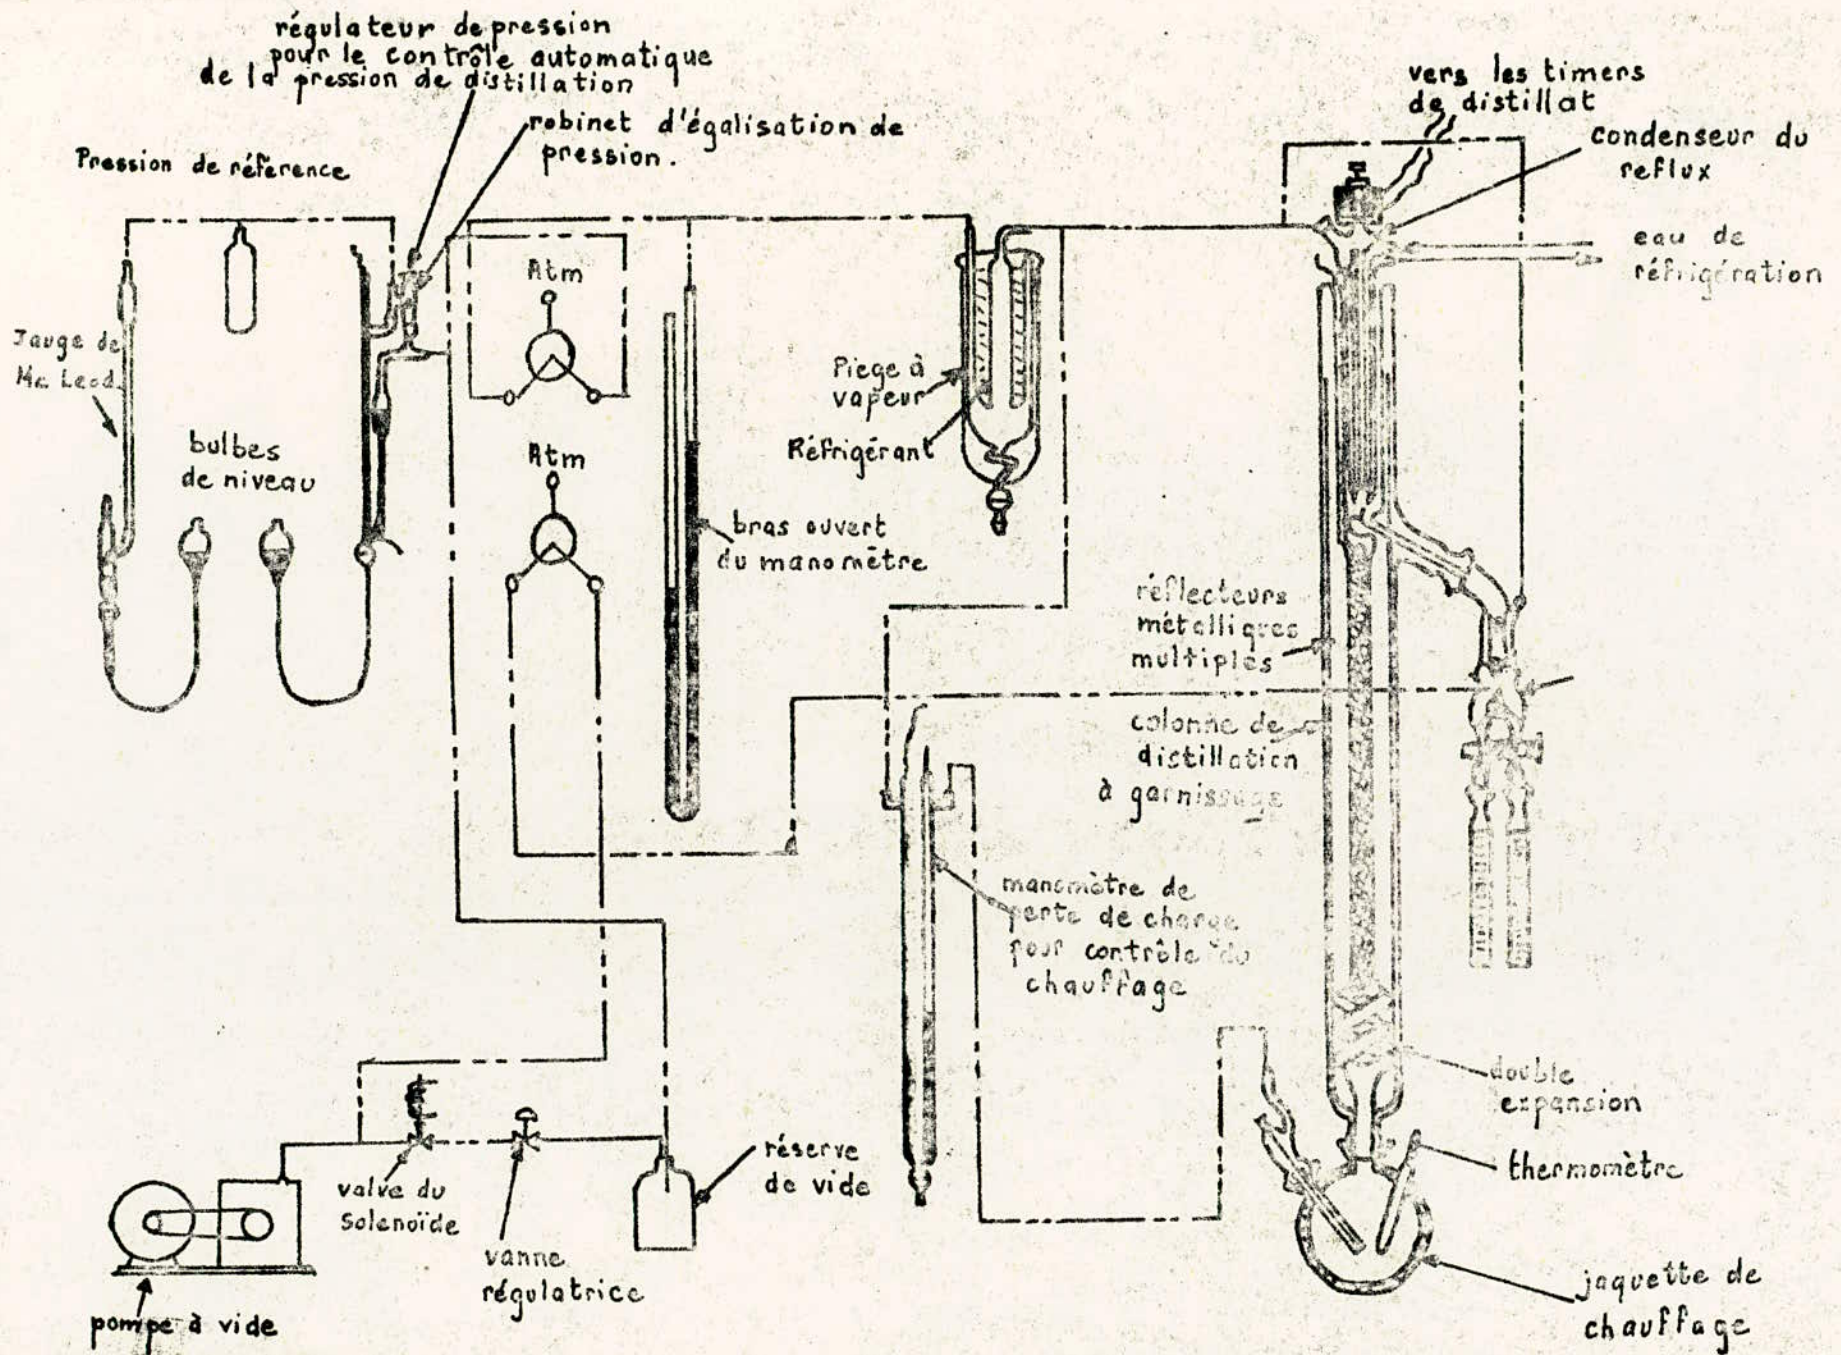 régulateur de pression
pour le contrôle automatique
de la pression de distillation
robinet d'égalisation de
pression.
Pression de réference
vers les timers
de distillat
condenseur du
reflux
eau de
réfrigération
Atm
Jauge de
Mc Leod
Piege à
vapeur
Réfrigérant
bulbes
de niveau
Atm
bras ouvert
du manomètre
réflecteurs
métalliques
multiples
colonne de
distillation
à garnissage
manomètre de
perte de charge
pour contrôle du
chauffage
double
expansion
thermomètre
réserve
de vide
valve du
Solenoïde
vanne
régulatrice
jaquette de
chauffage
pompe à vide